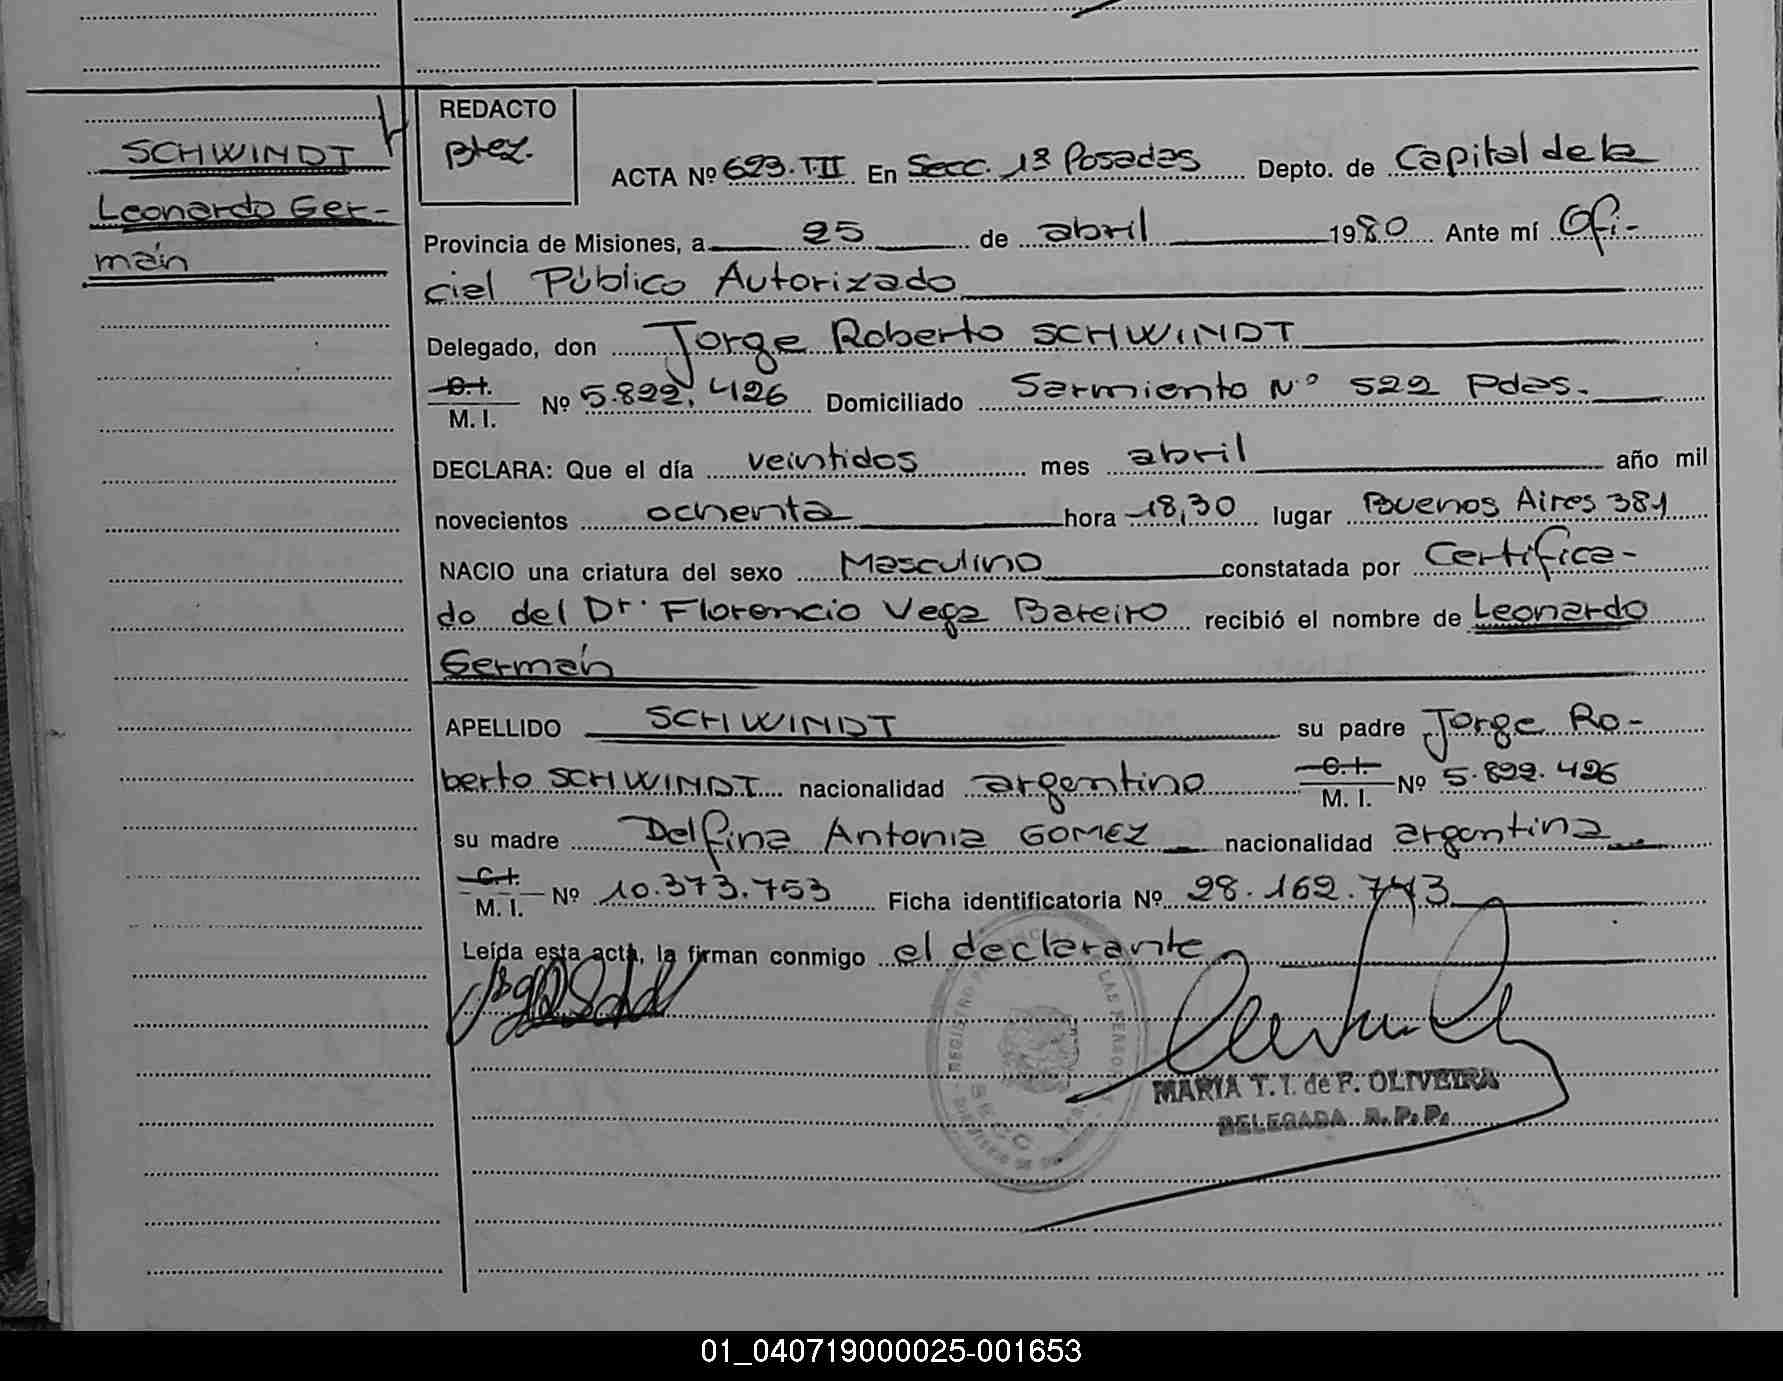 SCHWINDT
Leonardo Ger-
mán
REDACTO
Btez.
ACTA Nº 623.TII En Secc. 1ª Posadas Depto. de Capital de la
Provincia de Misiones, a 25 de abril 1980 Ante mí Ofi-
cial Público Autorizado
Delegado, don Jorge Roberto SCHWINDT
C.I.
M. I. Nº 5.822.426 Domiciliado Sarmiento Nº 522 Pdas.
DECLARA: Que el día veintidos mes abril año mil
novecientos ochenta hora 18,30 lugar Buenos Aires 381
NACIO una criatura del sexo Masculino constatada por Certifica-
do del Dr. Florencio Vega Bareiro recibió el nombre de Leonardo
Germán
APELLIDO SCHWINDT su padre Jorge Ro-
berto SCHWINDT nacionalidad argentino C.I.
M. I. Nº 5.822.426
su madre Delfina Antonia GOMEZ nacionalidad argentina
C.I.
M. I. Nº 10.373.753 Ficha identificatoria Nº 28.162.743
Leída esta acta, la firman conmigo el declarante
MARIA T. I. de P. OLIVEIRA
DELEGADA R. P. P.
01_040719000025-001653